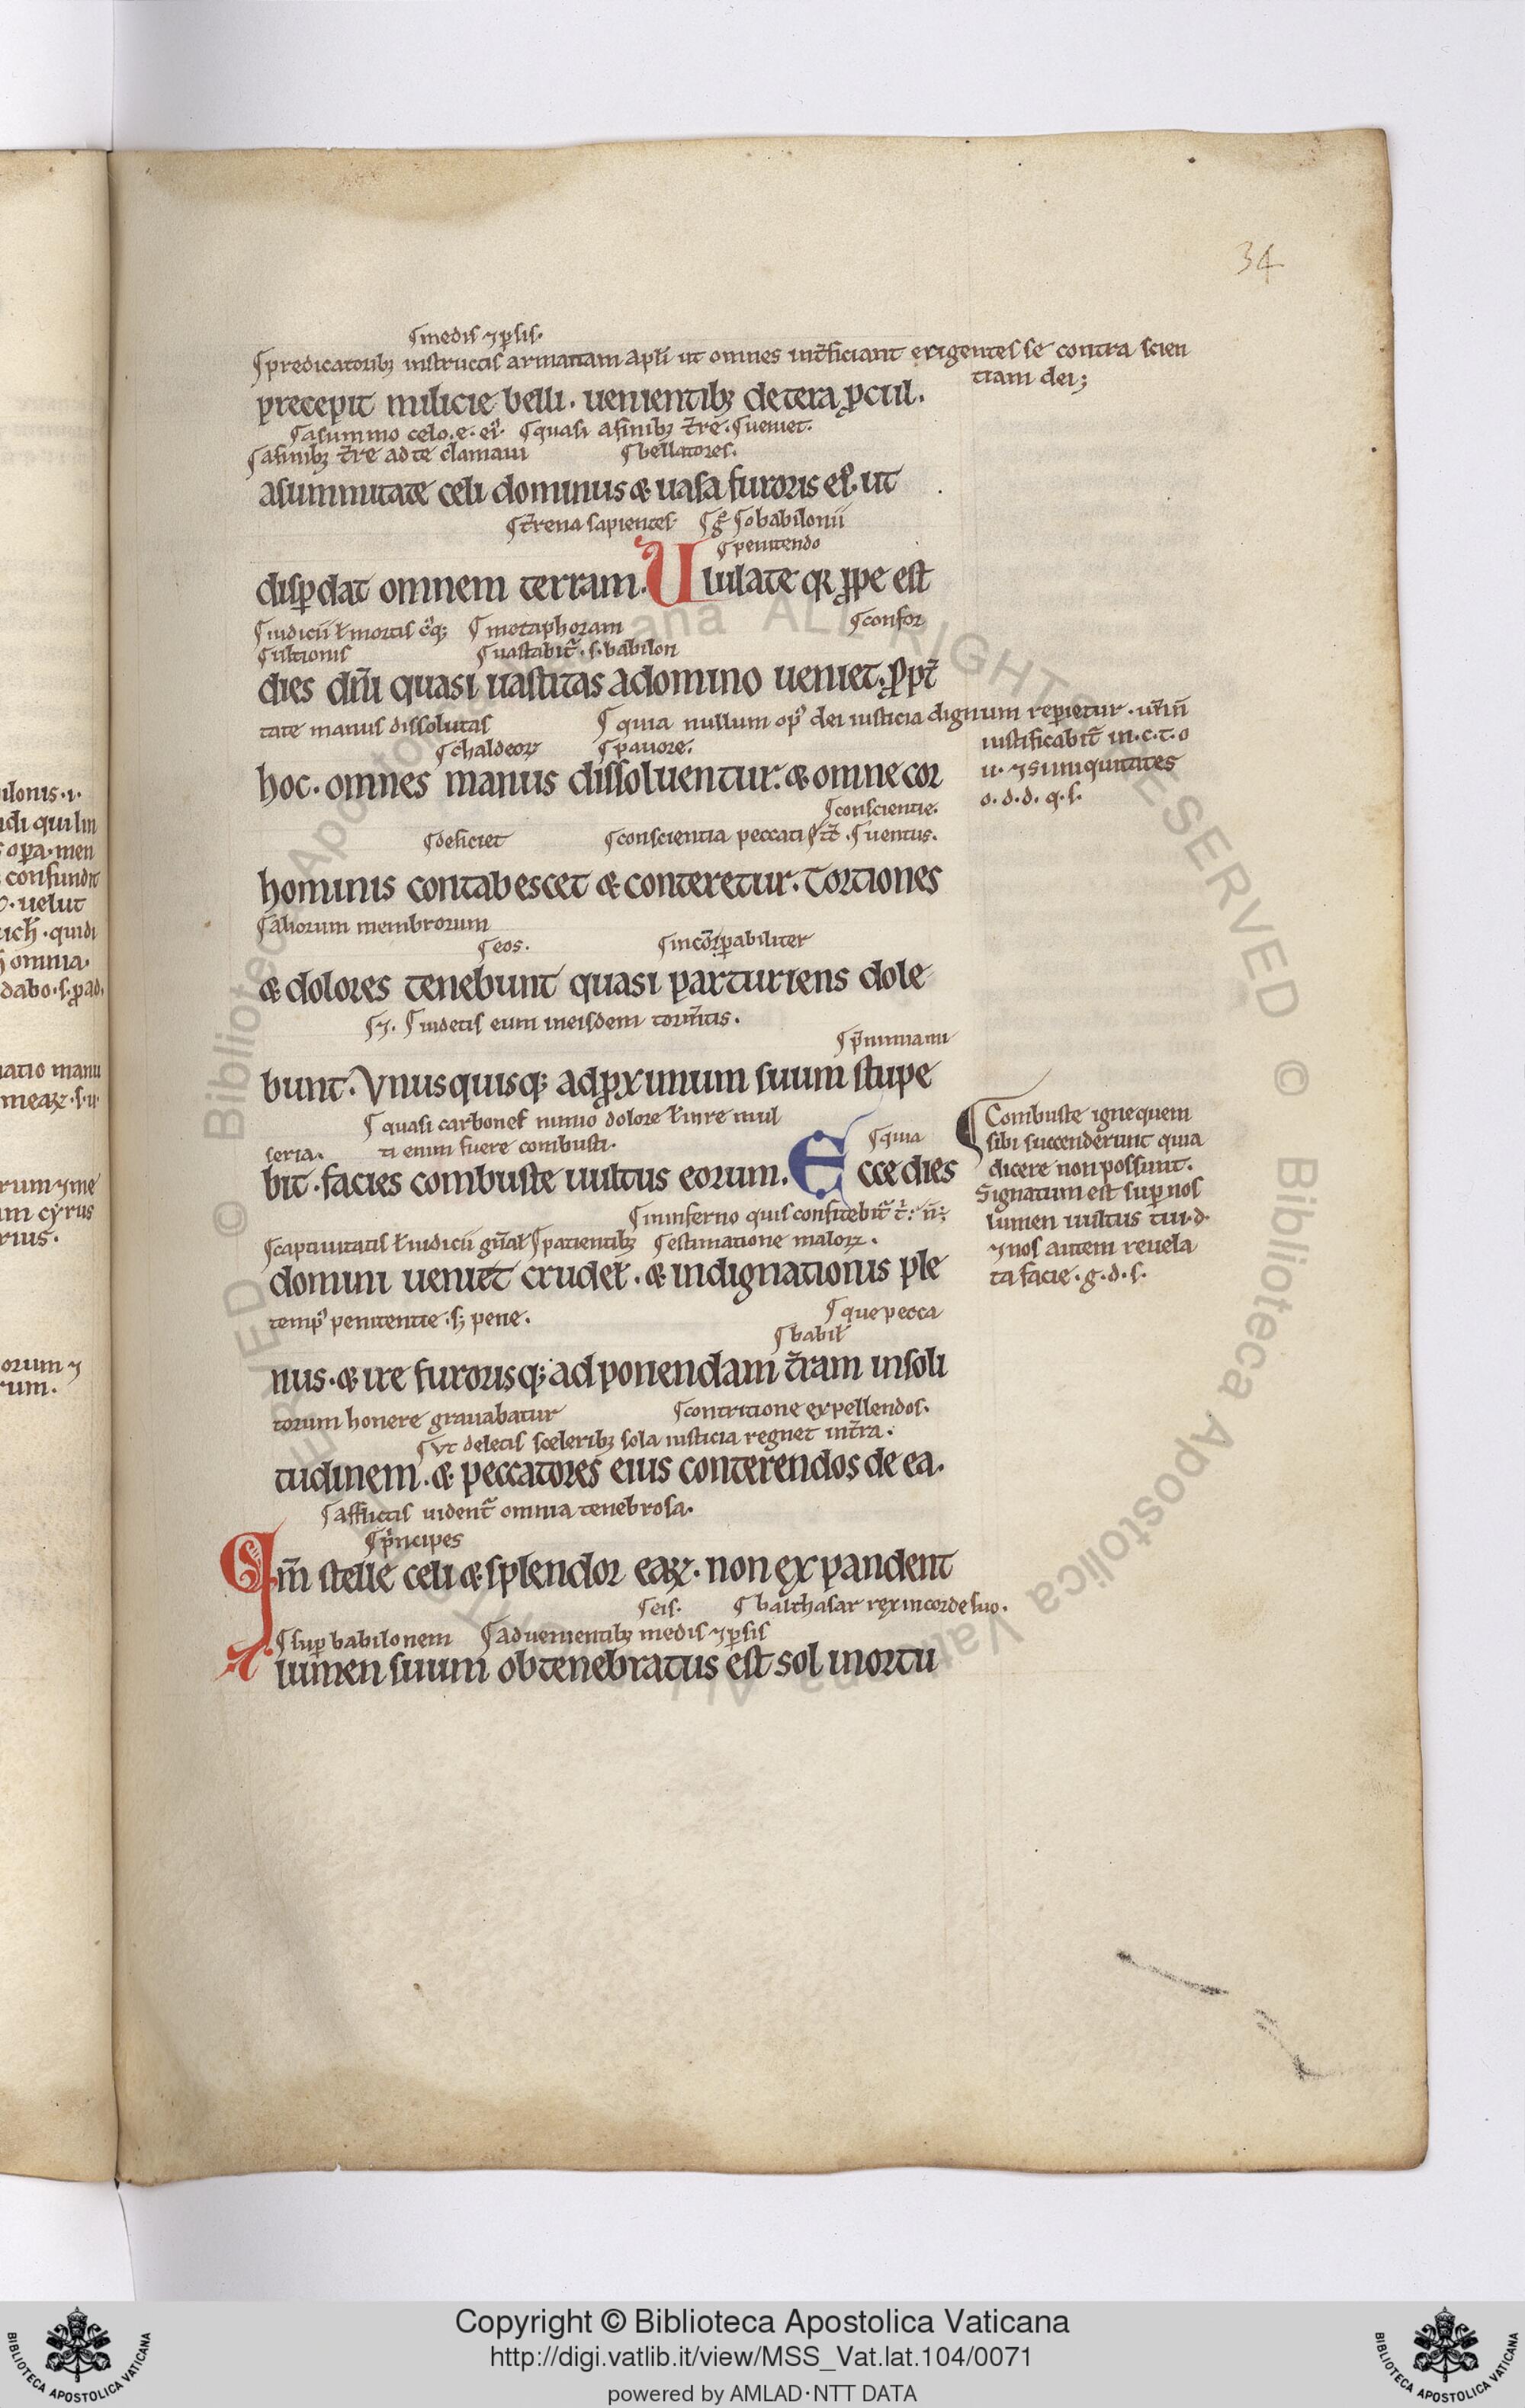 34
medis ⁊ ꝑsis.
predicatorib; instructis armatam apłi ut omnes int̃ficiant erigentes se contra scien
tiam dei;
precepit milicie belli. uenientib; de tera ꝓcul.
a summo celo. e. ei᷒. quasi a finib; t̃re. ueniet.
a finib; t̃re ad te clamaui bellatores.
a summitate celi dominus & uasa furoris ei᷒. ut
t̃rena sapientes g̊ o babilonii
penitendo
disꝑdat omnem terram. Ululate qꝛ ꝓpe est
iudicii ł mortis metaphoram confor
ultionis uastabit᷑. s. babilon
dies dñi quasi uastitas a domino ueniet. ꝓpt̃
tate manus dissolutas quia nullum op᷒ dei iusticia dignum reperietur.
chaldeoꝝ pauore. iustificabit᷑ in. c. t. o
hoc. omnes manus dissoluentur. & omne cor u. ⁊ si iniquitates
conscientie. o. d. d. q. s.
deficiet conscientia peccati uentus.
hominis contabescet & conteretur. Tortiones
aliorum membrorum
eos. incõꝑabiliter
& dolores tenebunt quasi parturiens dole
⁊. uidetis eum in eisdem torm̃tis.
bunt. Vnusquisq; ad ꝓximum suum stupe
quasi carbones nimio dolore ł in re mul
seria. ti enim fuere combusti. quia
bit. facies combuste uultus eorum. Ecce dies
Combuste igne quem
sibi succenderunt quia
dicere non possunt.
Signatum est suꝑ nos
lumen uultus tui. d.
⁊ nos autem reuela
ta facie. g. d. s.
in inferno quis confitebit᷑ t̉. ñ;
captiuitatis ł iudicii patientib; estimatione maloꝝ.
domini ueniet crudeł. & indignationis ple
temp᷒ penitentie. s; pene. que pecca
babił
nus. & ire furorisq; ad ponendam t̃ram in soli
torum honere grauabatur contritione expellendos.
Vt deletis sceleribus sola iusticia regnet in t̃ra.
tudinem. & peccatores eius conterendos de ea.
afflictis uident᷑ omnia tenebrosa.
p̉ncipes
Qm̃ stelle celi & splendor eaꝝ. non expandent
eis. balthasar rex in corde suo.
suꝑ babilonem aduenientib; medis ⁊ ꝑsis
lumen suum obtenebratus est sol in ortu
Copyright © Biblioteca Apostolica Vaticana
http://digi.vatlib.it/view/MSS_Vat.lat.104/0071
powered by AMLAD·NTT DATA
BIBLIOTECA APOSTOLICA VATICANA
BIBLIOTECA APOSTOLICA VATICANA